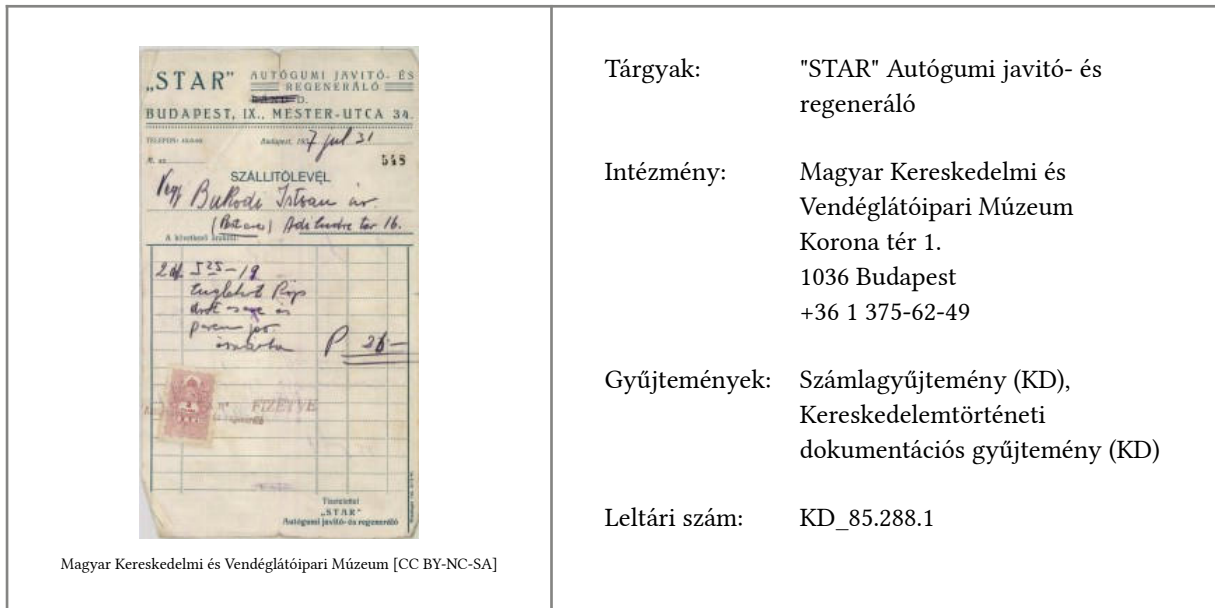 „STAR” AUTÓGUMI JAVITÓ- ÉS
REGENERÁLÓ
D.
BUDAPEST, IX., MESTER-UTCA 34.
TELEFON:
Budapest, 1937 jul 31
548
SZÁLLITÓLEVÉL
Bukodi István úr
Adi Endre tér 16.
A következő árukról:
525-19
P 26-
FIZETVE
Tisztelettel
„STAR”
Autógumi javitó- és regeneráló
Magyar Kereskedelmi és Vendéglátóipari Múzeum [CC BY-NC-SA]
Tárgyak: "STAR" Autógumi javitó- és
regeneráló
Intézmény: Magyar Kereskedelmi és
Vendéglátóipari Múzeum
Korona tér 1.
1036 Budapest
+36 1 375-62-49
Gyűjtemények: Számlagyűjtemény (KD),
Kereskedelemtörténeti
dokumentációs gyűjtemény (KD)
Leltári szám: KD_85.288.1